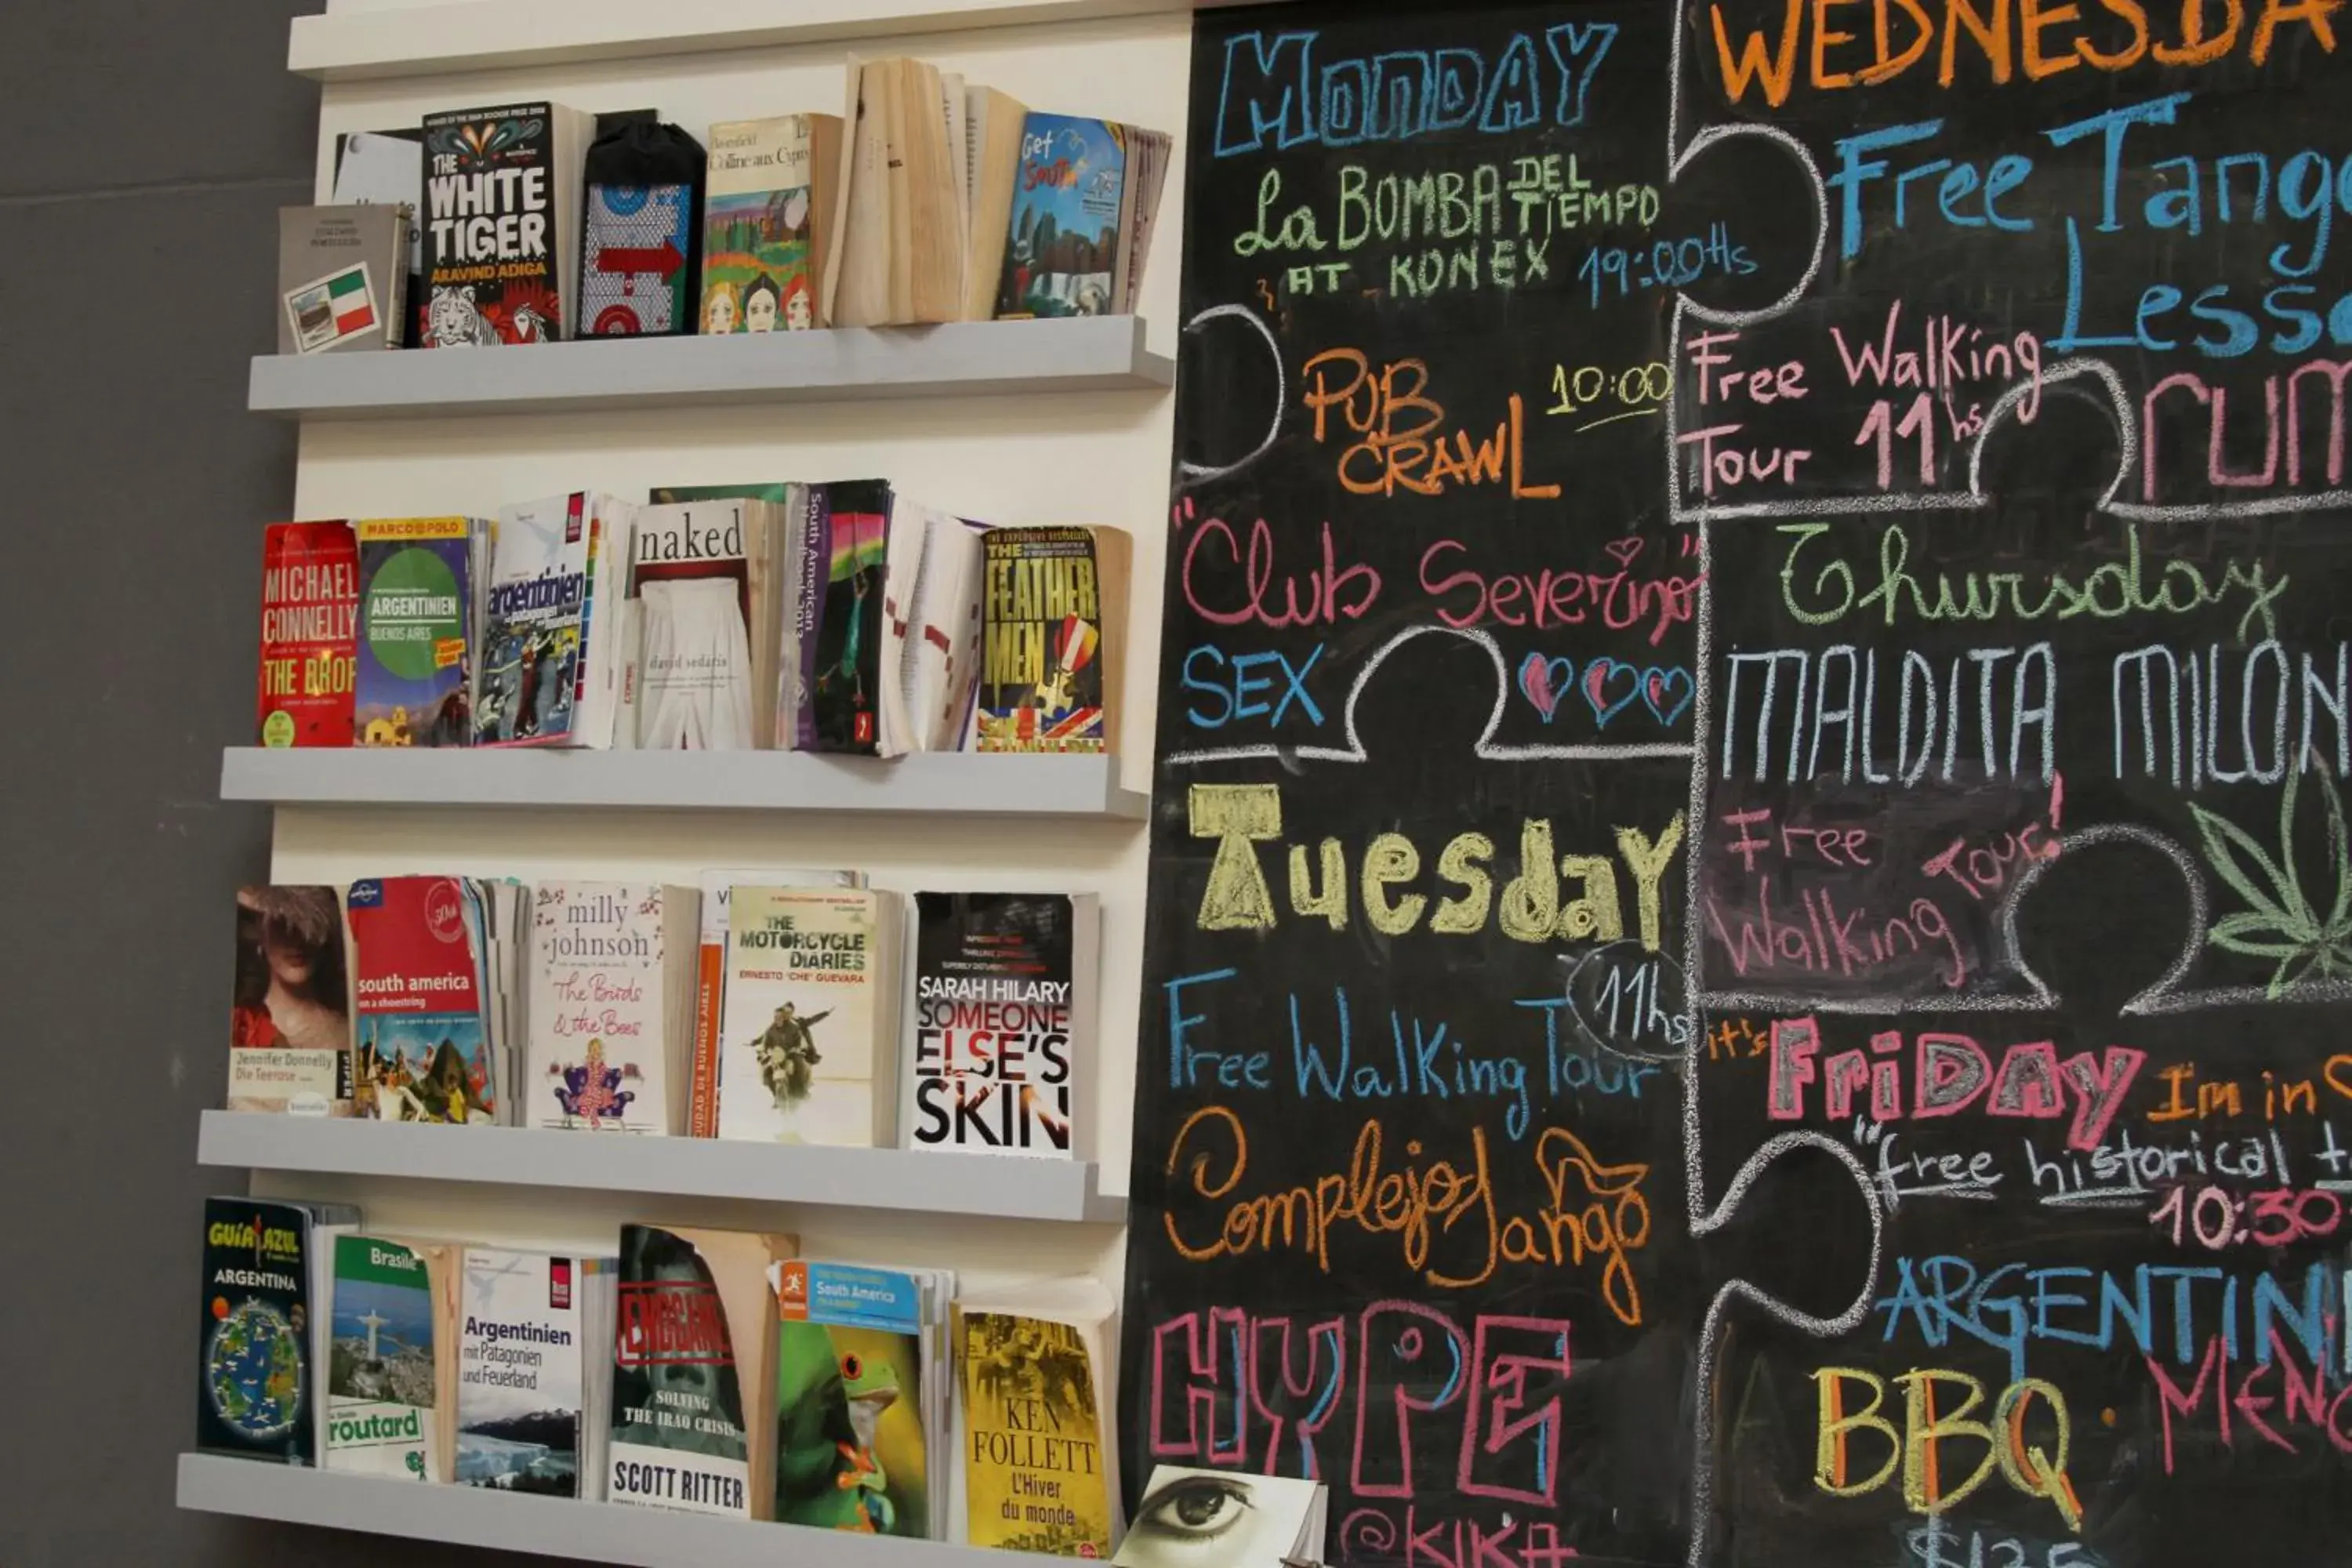 THE
WHITE
TIGER
ARAVIND ADIGA
Get
South
MICHAEL
CONNELLY
THE DROP
MARCO POLO
ARGENTINIEN
BUENOS AIRES
argentinien
patagonien
naked
david sedaris
South American
Handbook 2013
THE
FEATHER
MEN
Jennifer Donnelly
Die Teerose
PIPER
south america
on a shoestring
milly
johnson
The Birds
& the Bees
THE
MOTORCYCLE
DIARIES
ERNESTO 'CHE' GUEVARA
SARAH HILARY
SOMEONE
ELSE'S
SKIN
GUÍA AZUL
ARGENTINA
Brasile
routard
Argentinien
mit Patagonien
und Feuerland
ENDGAME
SOLVING
THE IRAQ CRISIS
SCOTT RITTER
South America
KEN
FOLLETT
L'Hiver
du monde
MONDAY
La BOMBA DEL TIEMPO
AT KONEX 19:00Hs
PUB
CRAWL 10:00
"Club Severino"
SEX
Tuesday
11hs
Free Walking Tour
Complejo Tango
HYPE
@KIKA
WEDNESDA
Free Tango
Lesso
Free Walking
Tour 11hs
Thursday
MALDITA MILON
Free
Walking Tour!
it's FRiDAY Im in
"free historical t
10:30
ARGENTIN
BBQ
$125